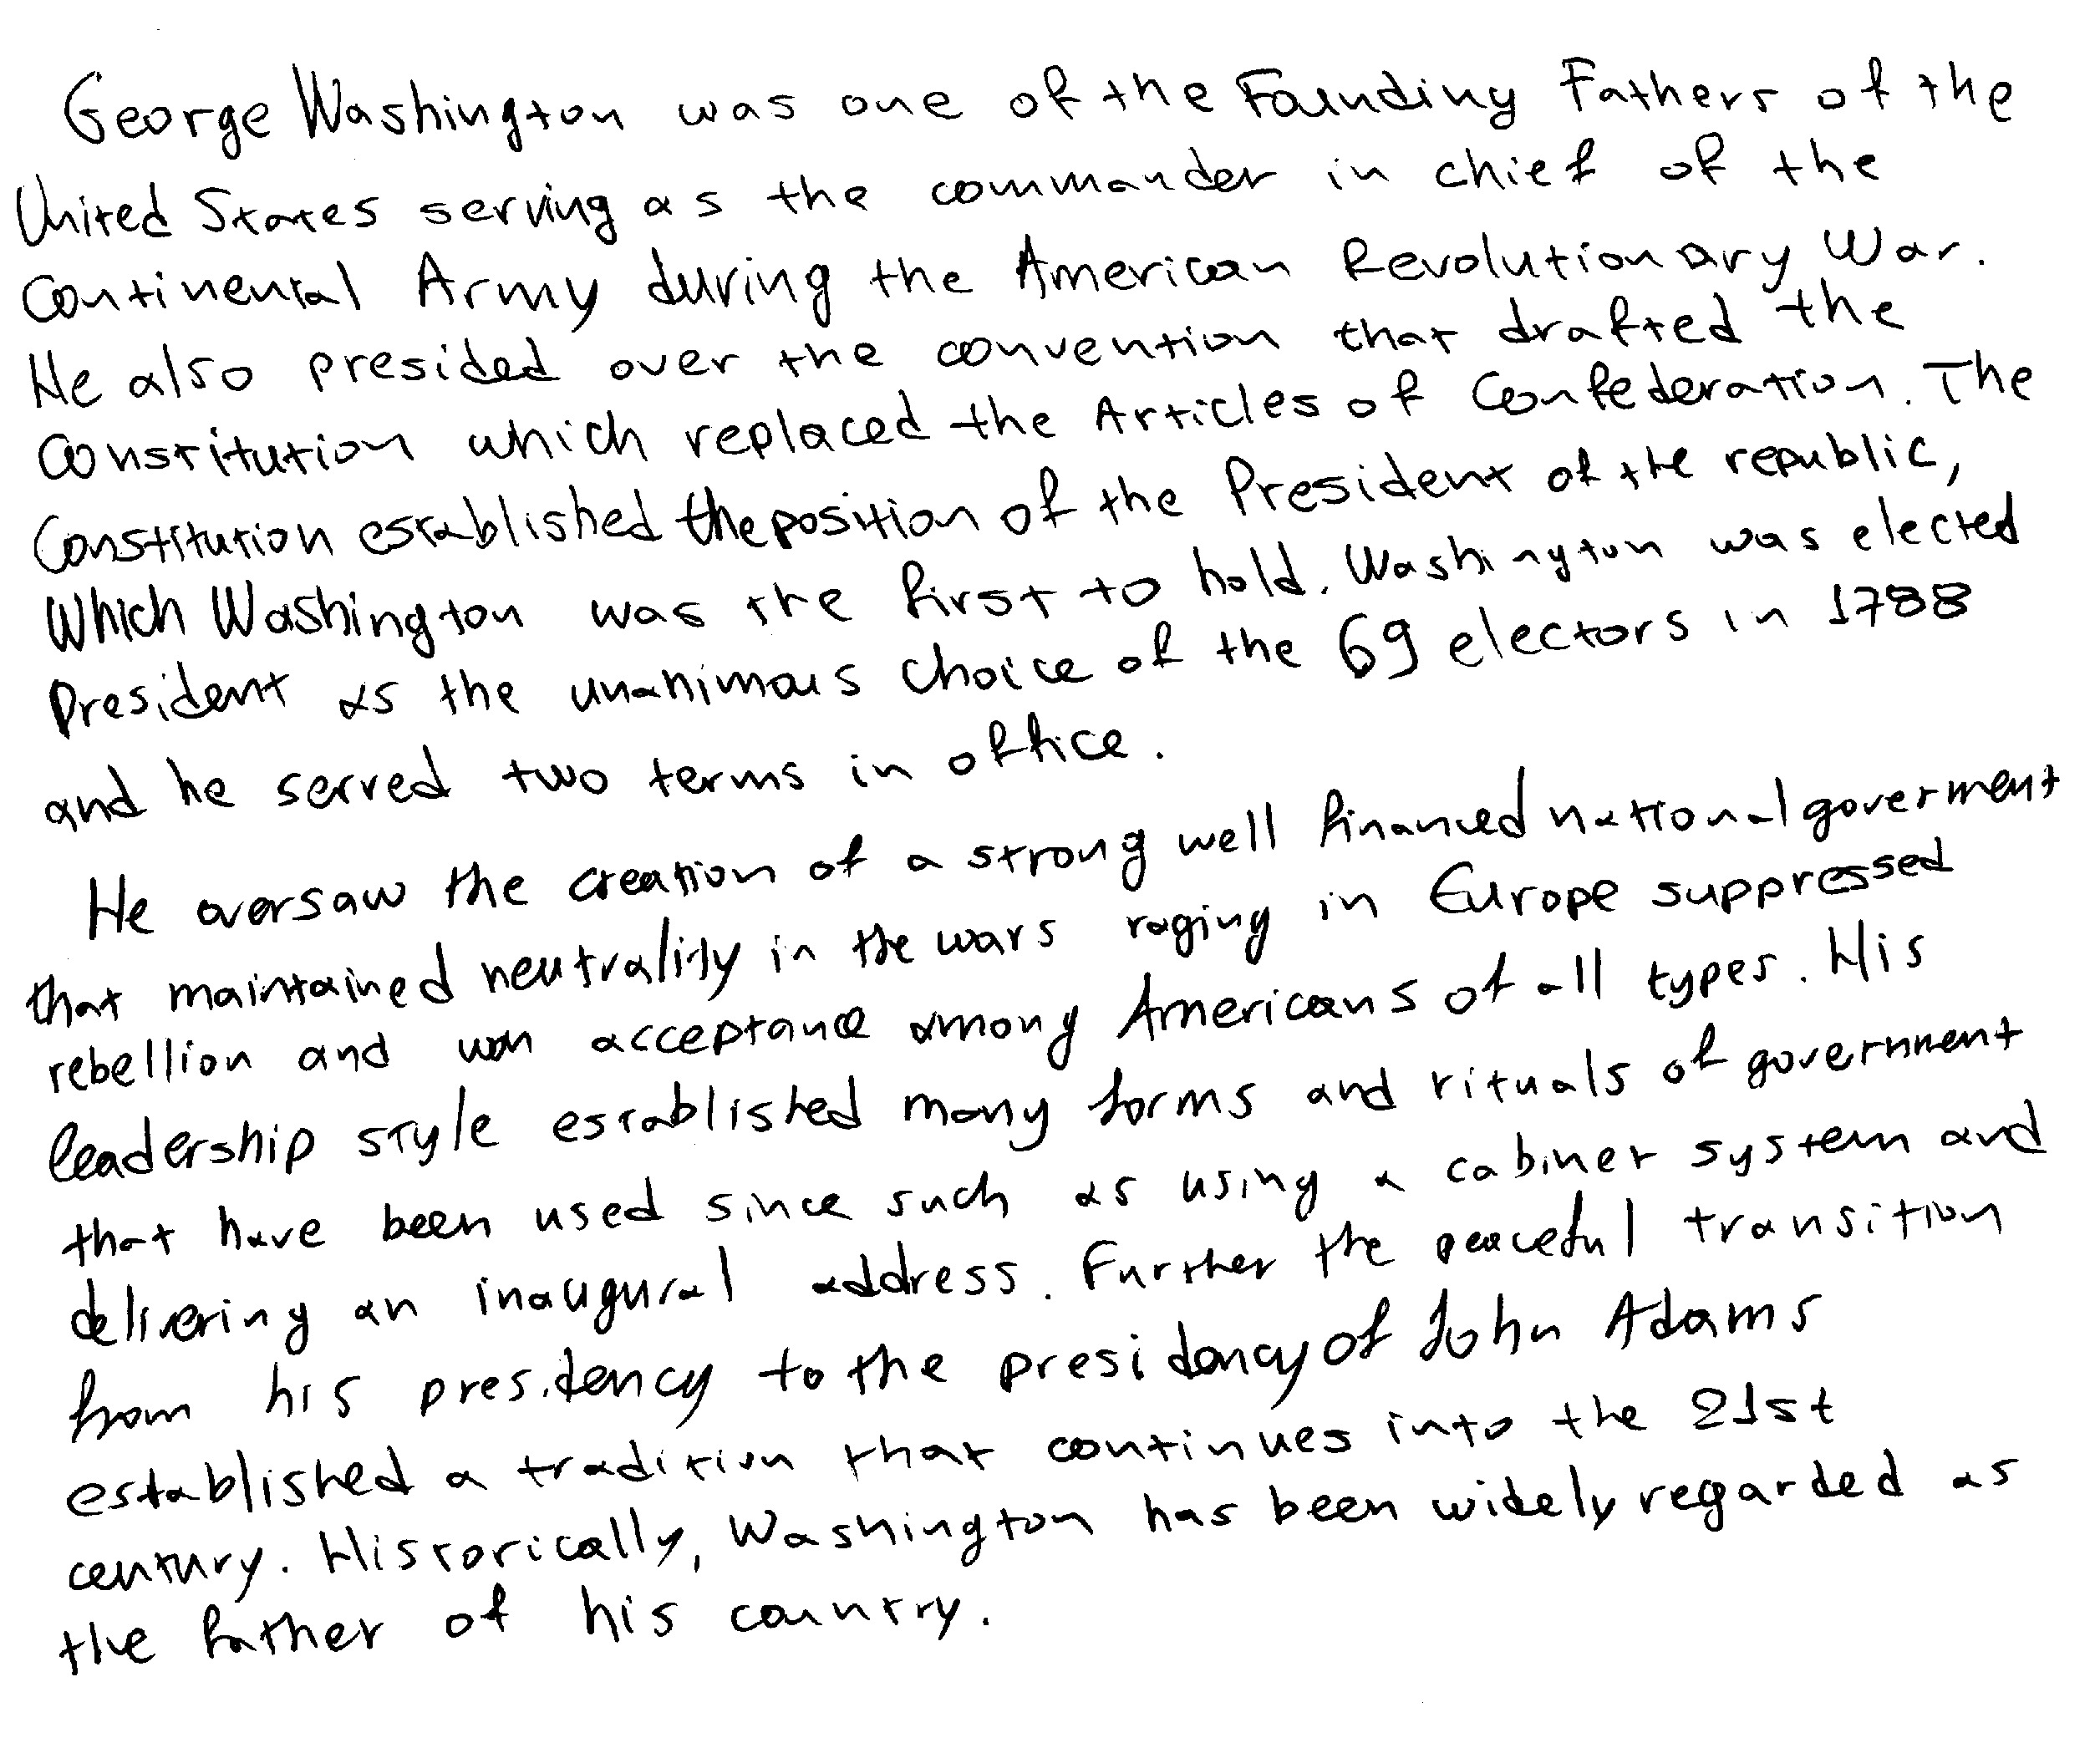 George Washington was one of the Founding Fathers of the
United States serving as the commander in chief of the
Continental Army during the American Revolutionary War.
He also presided over the convention that drafted the
Constitution which replaced the Articles of Confederation. The
Constitution established the position of the President of the republic,
which Washington was the first to hold. Washington was elected
President as the unanimous choice of the 69 electors in 1788
and he served two terms in office.
He oversaw the creation of a strong well financed national goverment
that maintained neutrality in the wars raging in Europe suppressed
rebellion and won acceptance among Americans of all types. His
leadership style established many forms and rituals of government
that have been used since such as using a cabinet system and
delivering an inaugural address. Further the peaceful transition
from his presidency to the presidency of John Adams
established a tradition that continues into the 21st
century. Historically, Washington has been widely regarded as
the father of his country.